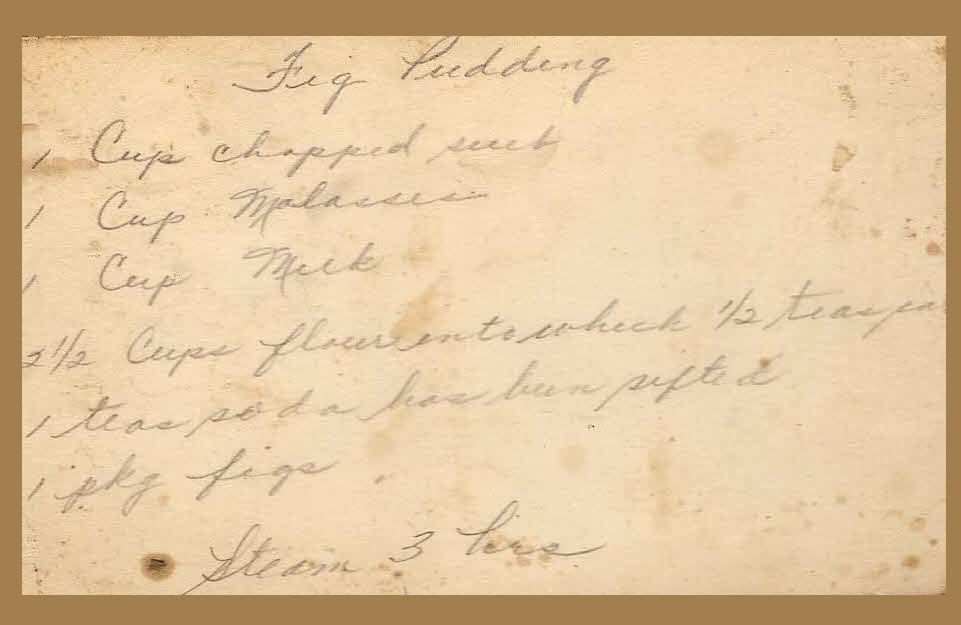 Fig Pudding
1 Cup chopped suet
1 Cup Molasses
1 Cup Milk
2 1/2 Cups flour into which 1/2 teas
1 teas soda has been sifted
1 pkg figs
Steam 3 hrs